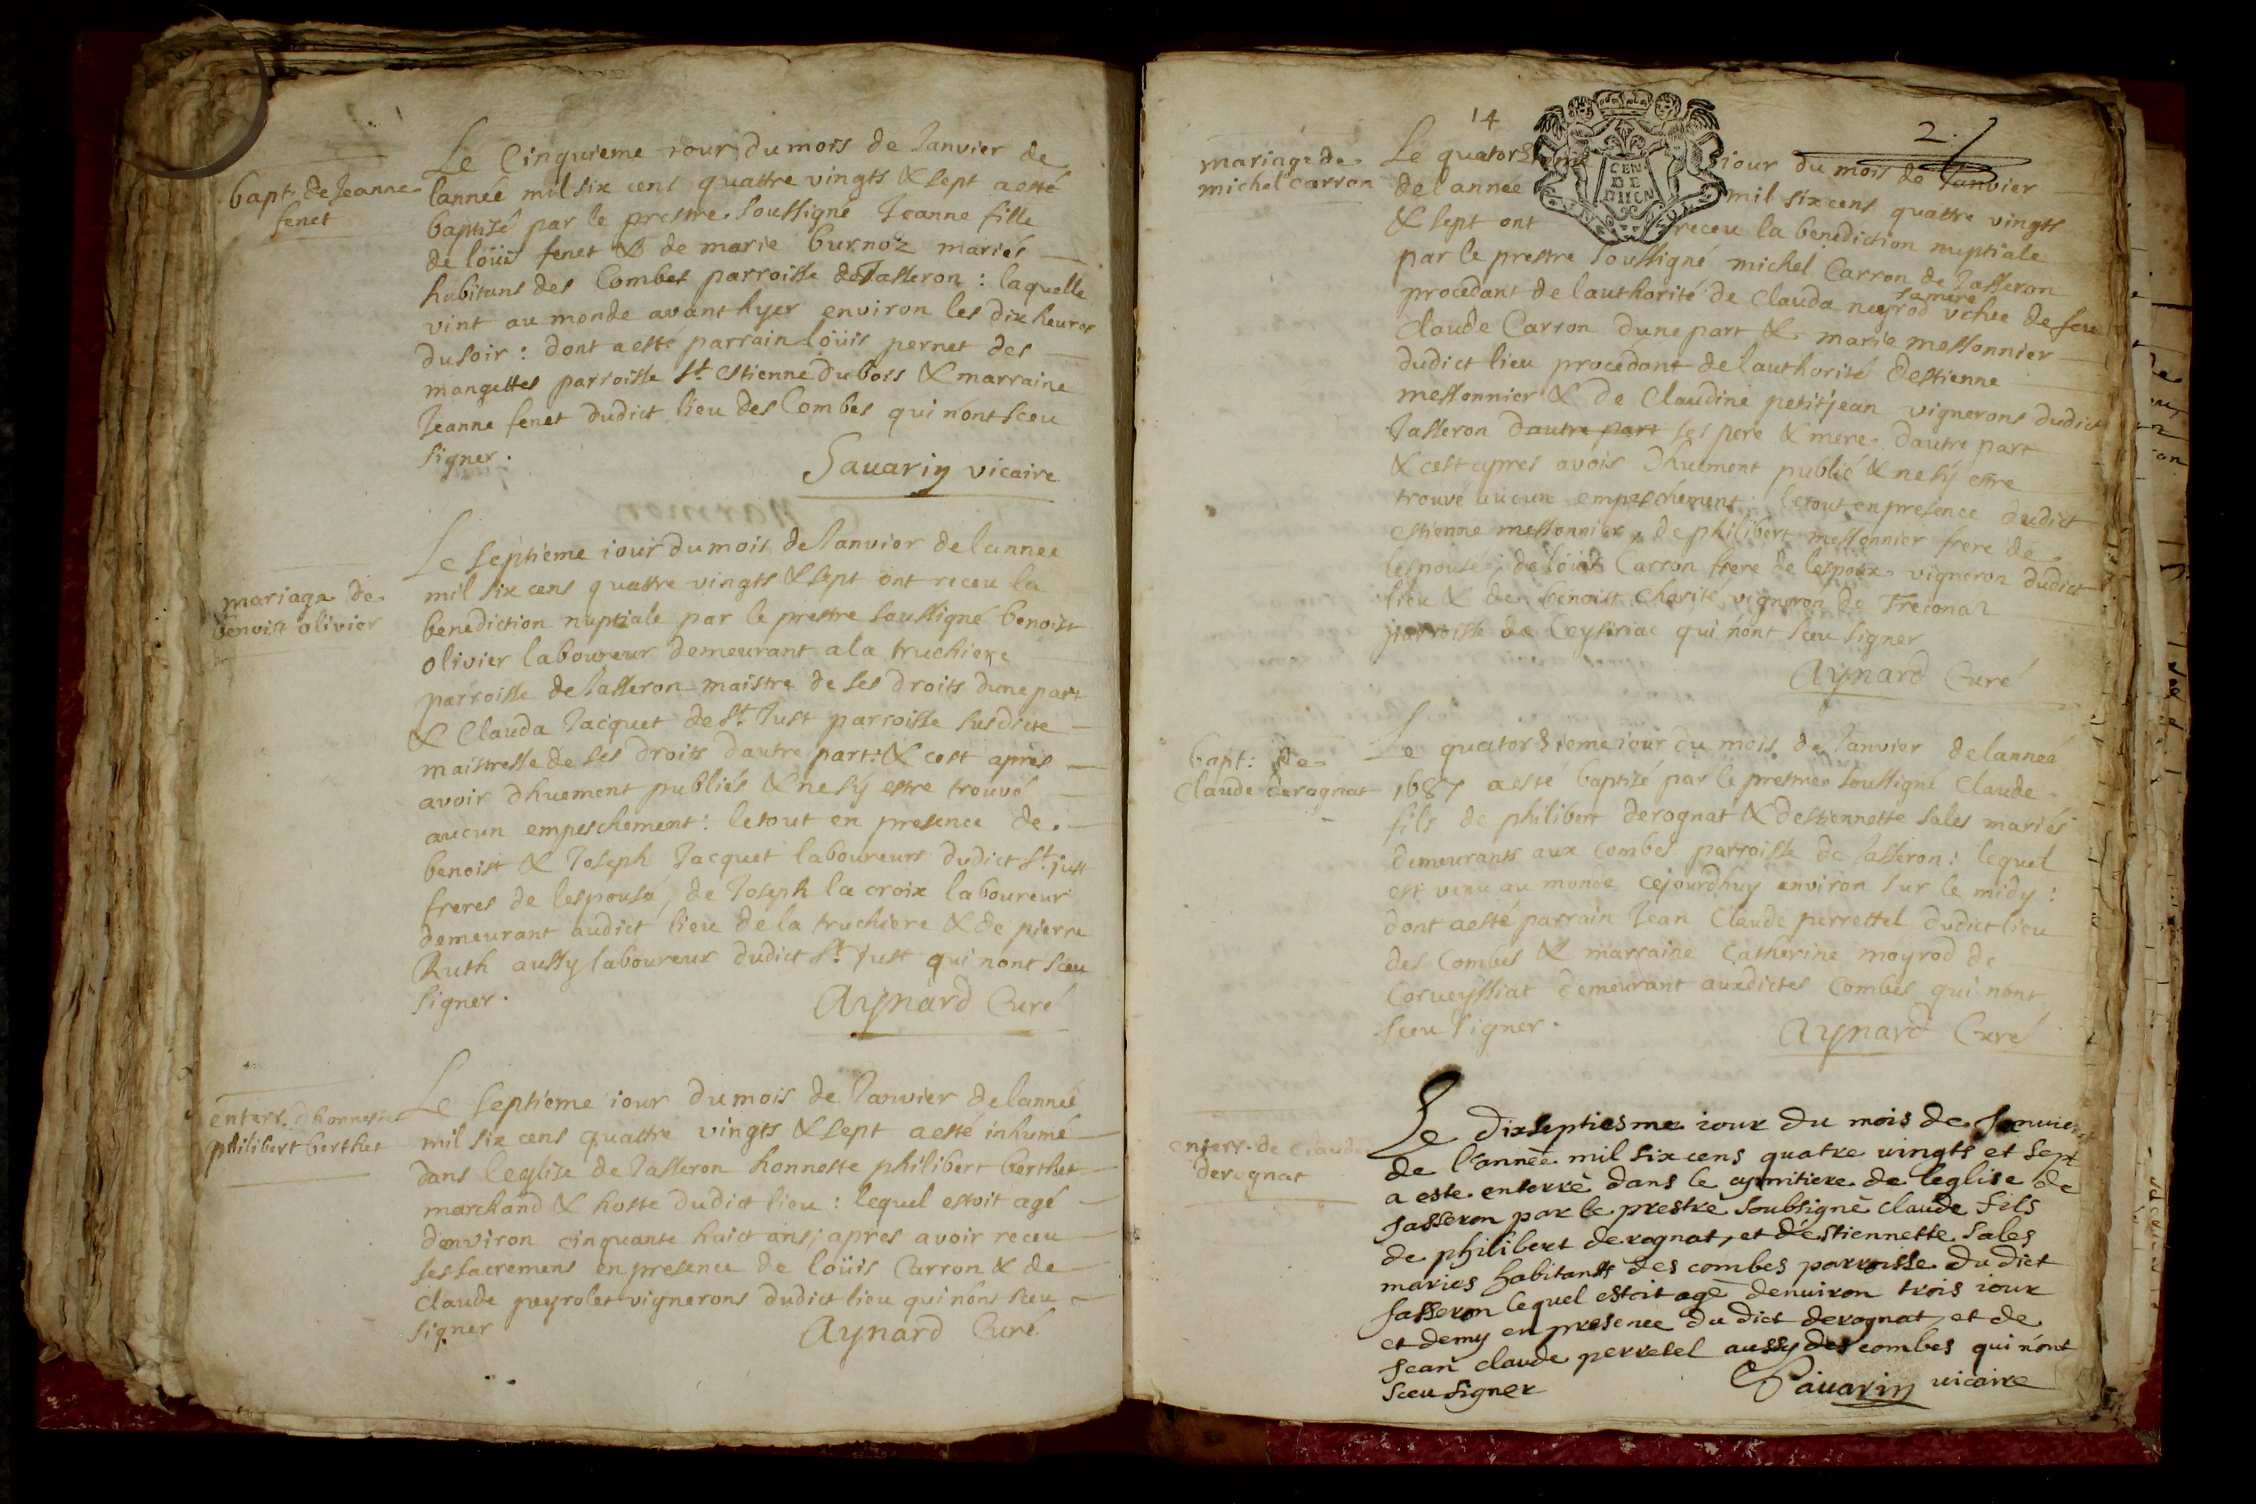 bapt. de Jeanne
fenet
Le Cinquieme iour du mois de Janvier de
lanneé mil six cens quattre vingts & sept a esté
baptisé par le prestre soussigné Jeanne fille
de loüis fenet & de marie burnoz mariés
habitans des Combes parroisse de Jasseron : laquelle
vint au monde avant hyer environ les dix heures
du soir : dont a esté parrain loüis pernet des
mangettes parroisse St. Estienne Du bois & marraine
Jeanne fenet dudict lieu des Combes qui n'ont sceu
signer.
Savarin vicaire
mariage de
benoist olivier
Le septieme iour du mois de Janvier de lannee
mil six cens quattre vingts & sept ont receu la
benediction nuptiale par le prestre soussigné benoist
olivier laboureur demeurant a la truchiere
parroisse de Jasseron maistre de ses droits dune part
& Clauda Jacquet de St. Just parroisse susdicte
maistresse de ses droits dautre part : & cest apres
avoir dhuement publiés & ne sy estre trouvé
aucun empeschement : le tout en presence de
benoist & Joseph Jacquet laboureurs dudict St. just
freres de lespousé, de Joseph la croix laboureur
demeurant audict lieu de la truchiere & de pierre
Ruth aussy laboureur dudict St. Just qui nont sceu
signer.
Aynard Curé
enterr. dhonneste
philibert berthet
Le septieme iour du mois de Janvier de lanneé
mil six cens quattre vingts & sept a esté inhumé
dans leglise de Jasseron honneste philibert berthet
marchand & hoste dudict lieu : lequel estoit agé
denviron cinquante huict ans ; apres avoir receu
ses sacremens en presence de loüis Carron & de
Claude peyrolet vignerons dudict lieu qui n'ont sceu
signer
Aynard Curé
14
2.
CEN
DE
mariage de
michel carron
Le quatorzieme iour du mois de Janvier
de lannée mil six cens quattre vingts
& sept ont receu la benediction nuptiale
par le prestre soussigné michel Carron de Jasseron
procedant de lauthorité de Clauda neyrod sa mere vefve de feu
Claude Carron dune part & marie messonnier
dudict lieu procedant de lauthorité destienne
messonnier & de Claudine petitjean vignerons dudict
Jasseron dautre part ses pere & mere dautre part
& cest apres avois dhuement publié & ne sy estre
trouvé aucun empeschement : le tout en presence dudict
estienne messonnier, de philibert messonnier frere de
lespousé ; de loüis Carron frere de lespoux vigneron dudict
lieu & de benoist Charite vigneron de Treconaz
parroisse de Ceyseriac qui n'ont sceu signer
Aynard Curé
bapt : de
Claude derognat
Le quatorzieme iour du mois de Janvier de lanneé
1687 a esté baptizé par le prestre soussigné Claude
fils de philibert derognat & destiennette sales mariés
demeurants aux combes parroisse de Jasseron : lequel
est venu au monde cejourdhuy environ sur le midy :
dont a esté parrain Jean Claude perrettel dudict lieu
des Combes & marraine Catherine moyrod de
Corveyssiat demeurant auxdictes Combes qui n'ont
sceu signer.
Aynard Curé
enterr. de Claude
derognat
Le dixseptiesme iour du mois de Januier
de l'année mil six cens quatre vingts et sept
a este enterré dans le cymitiere de leglise de
Jasseron par le prestre soubsigné claude fils
de philibert derognat, et d'éstiennette sales
maries habitants des combes parroisse du dict
Jasseron lequel estoit agé denuiron trois iour
et demy en presence du dict derognat, et de
Jean claude perretel aussy des combes qui n'ont
sceu signer
Savarin vicaire